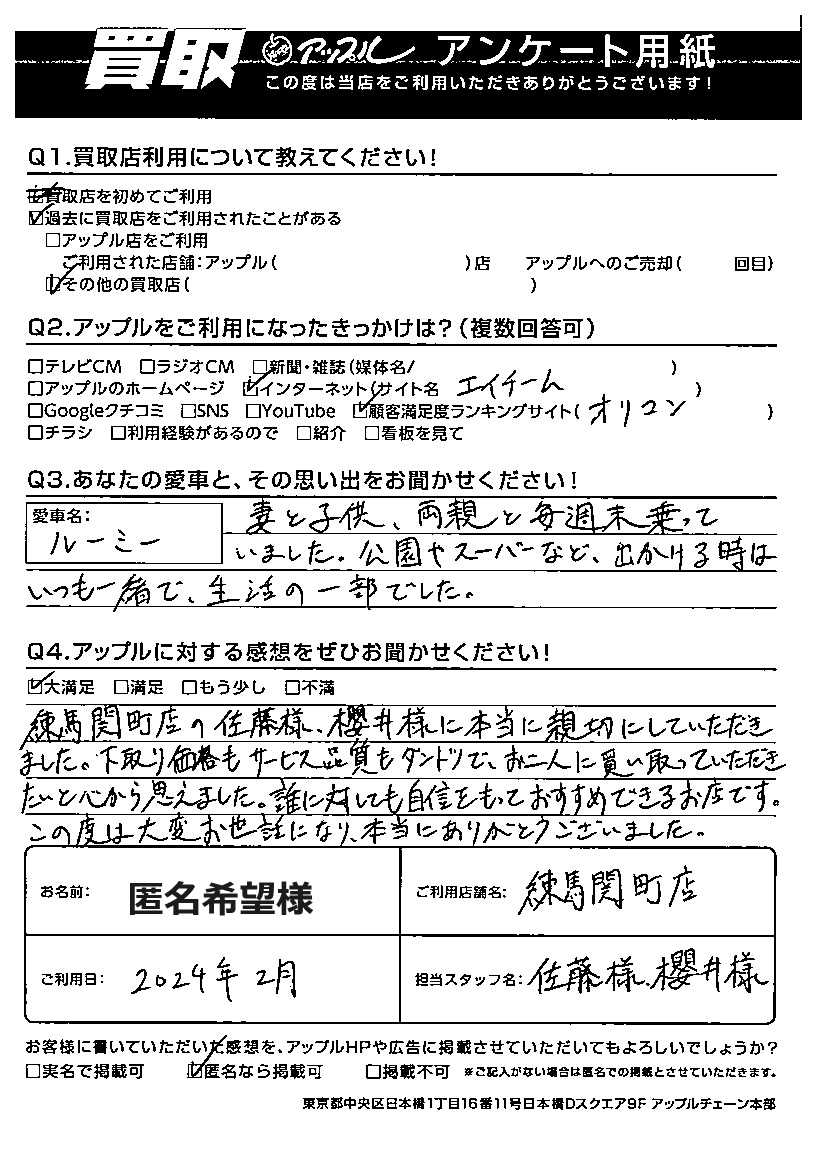 買取 アップル アンケート用紙
この度は当店をご利用いただきありがとうございます!
Q1.買取店利用について教えてください!
買取店を初めてご利用
☑過去に買取店をご利用されたことがある
□アップル店をご利用
ご利用された店舗:アップル( )店 アップルへのご売却( 回目)
☑その他の買取店( )
Q2.アップルをご利用になったきっかけは?(複数回答可)
□テレビCM □ラジオCM □新聞・雑誌(媒体名/ )
□アップルのホームページ ☑インターネット(サイト名 エイチーム )
□Googleクチコミ □SNS □YouTube ☑顧客満足度ランキングサイト( オリコン )
□チラシ □利用経験があるので □紹介 □看板を見て
Q3.あなたの愛車と、その思い出をお聞かせください!
愛車名:
ルーミー
妻と子供、両親と毎週末乗って
いました。公園やスーパーなど、出かける時は
いつも一緒で、生活の一部でした。
Q4.アップルに対する感想をぜひお聞かせください!
☑大満足 □満足 □もう少し □不満
練馬関町店の佐藤様、櫻井様に本当に親切にしていただき
ました。下取り価格もサービス品質もダントツで、お二人に買い取っていただき
たいと心から思えました。誰に対しても自信をもっておすすめできるお店です。
この度は大変お世話になり、本当にありがとうございました。
お名前: 匿名希望様 ご利用店舗名: 練馬関町店
ご利用日: 2024年2月 担当スタッフ名: 佐藤様、櫻井様
お客様に書いていただいた感想を、アップルHPや広告に掲載させていただいてもよろしいでしょうか?
□実名で掲載可 ☑匿名なら掲載可 □掲載不可 ※ご記入がない場合は匿名での掲載とさせていただきます。
東京都中央区日本橋1丁目16番11号日本橋Dスクエア9F アップルチェーン本部